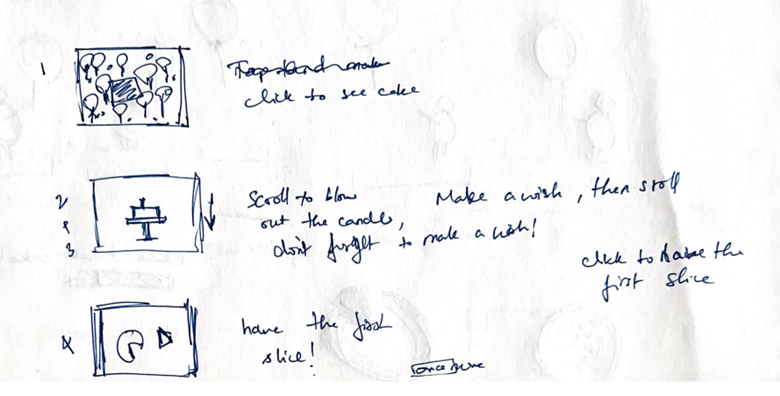 1
click to see cake
2
&
3
Scroll to blow
out the candle,
don't forget to make a wish!
Make a wish, then scroll
click to have the
first slice
4
have the first
slice!